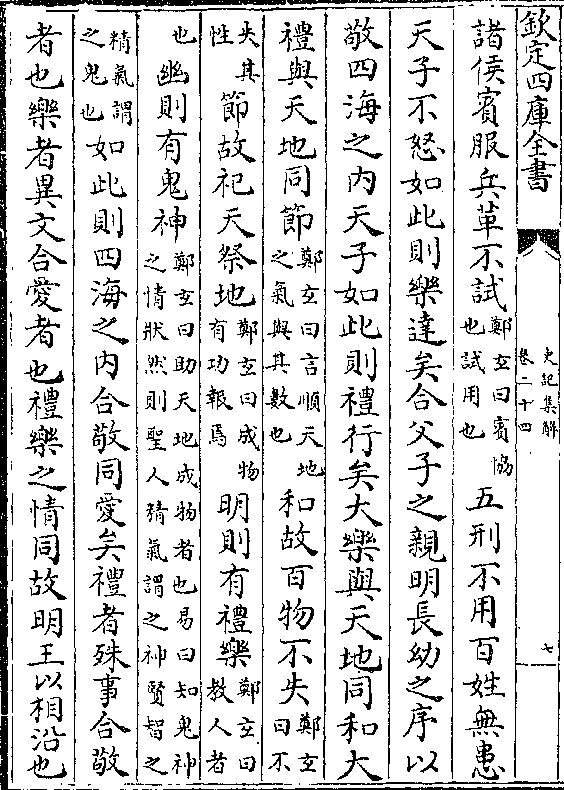 欽定四庫全書 史記集解 卷二十四 七
諸侯賓服兵革不試鄭玄曰賓協也試用也五刑不用百姓無患
天子不怒如此則樂達矣合父子之親明長幼之序以
敬四海之内天子如此則禮行矣大樂與天地同和大
禮與天地同節鄭玄曰言順天地之氣與其數也和故百物不失鄭玄曰不
失其性節故祀天祭地鄭玄曰成物有功報焉明則有禮樂鄭玄曰教人者
也幽則有鬼神鄭玄曰助天地成物者也易曰知鬼神之情狀然則聖人精氣謂之神賢智之
精氣謂之鬼也如此則四海之内合敬同愛矣禮者殊事合敬
者也樂者異文合愛者也禮樂之情同故明王以相沿也